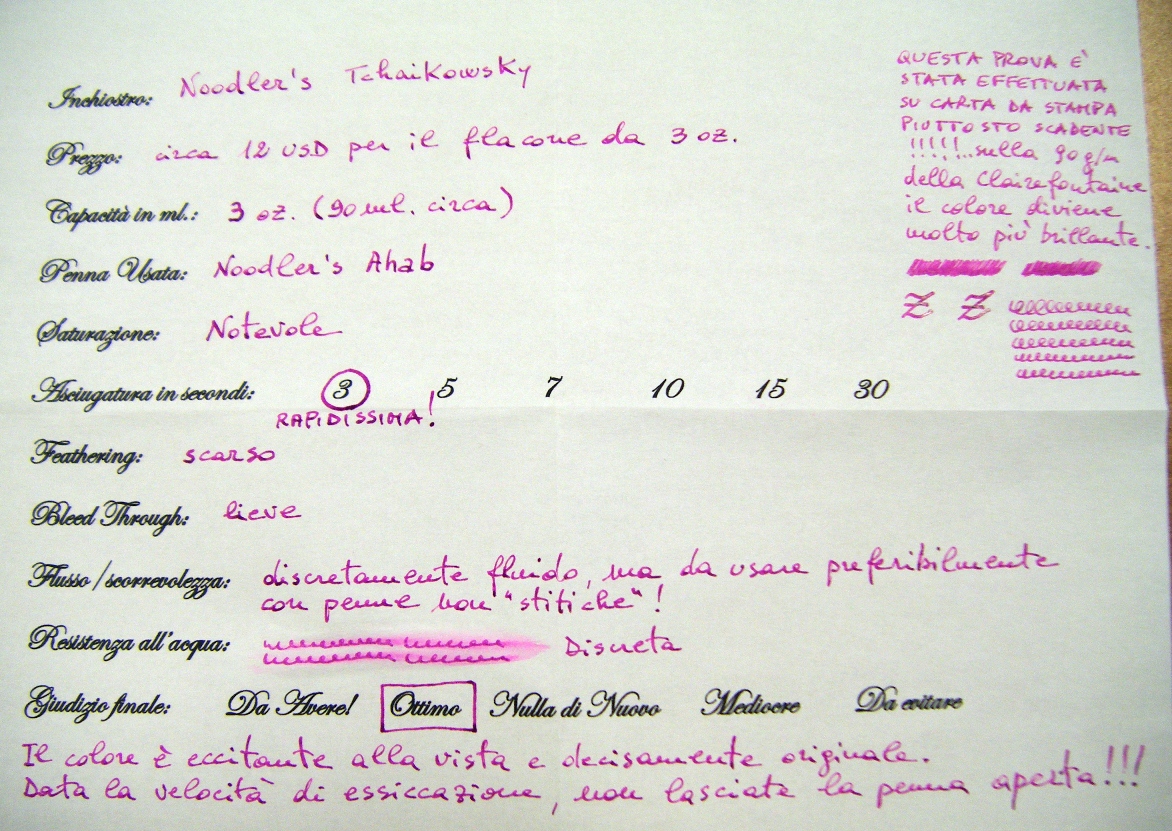 Inchiostro: Noodler's Tchaikowsky
Prezzo: circa 12 USD per il flacone da 3 oz.
Capacità in ml.: 3 oz. (90 ml. circa)
Penna Usata: Noodler's Ahab
Saturazione: Notevole
Asciugatura in secondi: 3 5 7 10 15 30
RAPIDISSIMA!
Feathering: scarso
Bleed Through: lieve
Flusso/scorrevolezza: discretamente fluido, ma da usare preferibilmente
con penne non "stitiche"!
Resistenza all'acqua: Discreta
Giudizio finale: Da Avere! Ottimo Nulla di Nuovo Mediocre Da evitare
Il colore è eccitante alla vista e decisamente originale.
Data la velocità di essiccazione, non lasciate la penna aperta!!!
QUESTA PROVA E'
STATA EFFETTUATA
SU CARTA DA STAMPA
PIUTTOSTO SCADENTE
!!!!!..sulla 90 g/m
della Clairefontaine
il colore diviene
molto più brillante.
Z Z